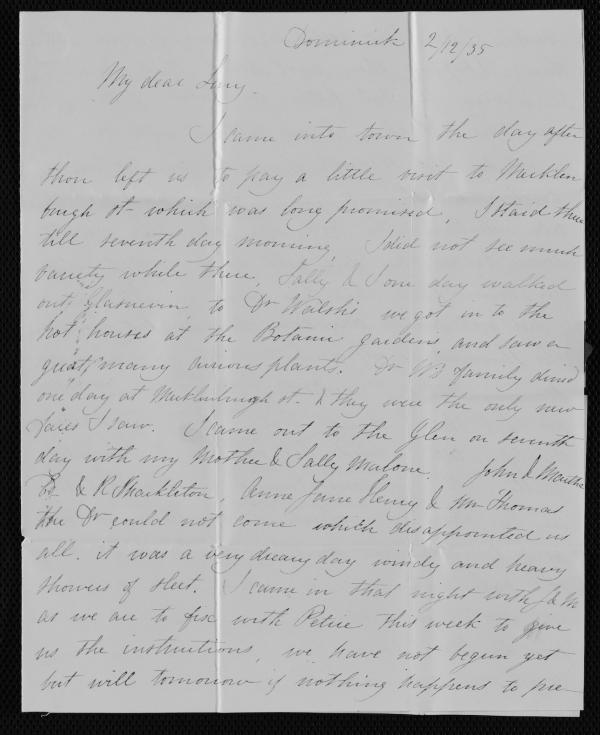 Dominick 2/12/35
My dear Lucy.
I came into town the day after
thou left us to pay a little visit to Mecklen
burgh st- which was long promised, I staid there
till seventh day morning, I did not see much
variety while there, Sally & I one day walked
out Glasnevin to Dr Walsh's we got in to the
hot houses at the Botanic gardens, and saw a
great many curious plants. Dr W's family dined
one day at Mecklenburgh st- & they were the only new
faces I saw. I came out to the Glen on seventh
day with my Mother & Sally Malone. John & Martha
& R Shackleton, Anne Jane Henry & Mr Thomas
the Dr could not come which disappointed us
all. it was a very dreary day windy and heavy
showers of sleet. I came in that night with J & M
as we are to fix with Petrie this week to give
us the instructions, we have not begun yet
but will tomorrow if nothing happens to pre-